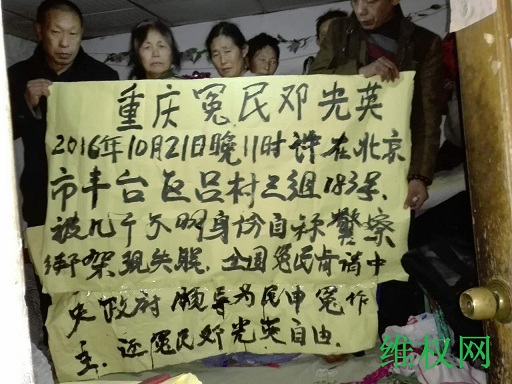 重庆冤民邓光英
2016年10月21日晚11时许在北京
市丰台区吕村三组183号、
被几个不明身份自称警察
绑架现失联.全国冤民肯请中
央政府领导为民申冤作
主.还冤民邓光英自由.
维权网